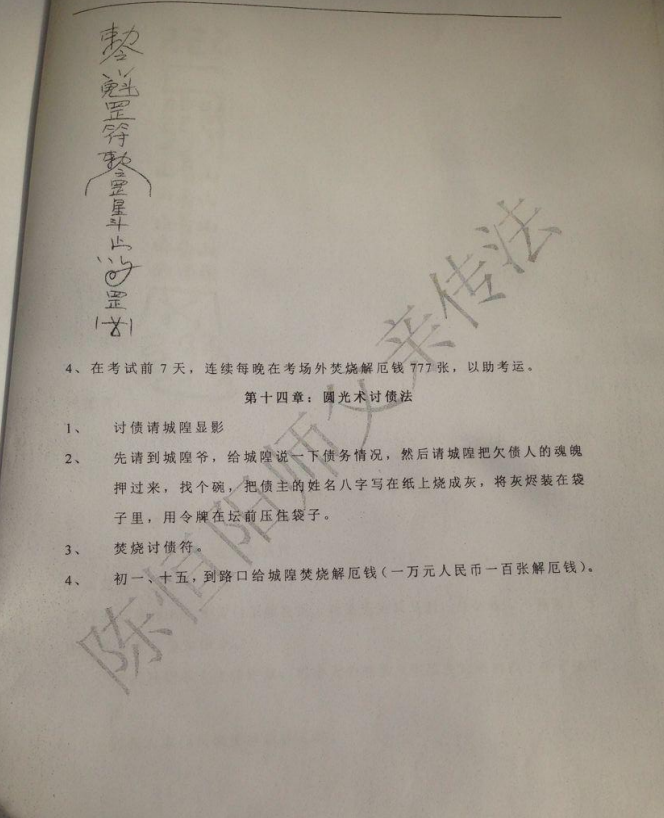 4、在考试前 7 天，连续每晚在考场外焚烧解厄钱 777 张，以助考运。
第十四章：圆光术讨债法
1、 讨债请城隍显影
2、 先请到城隍爷，给城隍说一下债务情况，然后请城隍把欠债人的魂魄
押过来，找个碗，把债主的姓名八字写在纸上烧成灰，将灰烬装在袋
子里，用令牌在坛前压住袋子。
3、 焚烧讨债符。
4、 初一、十五，到路口给城隍焚烧解厄钱（一万元人民币一百张解厄钱）。
陈恒阳师父亲传法